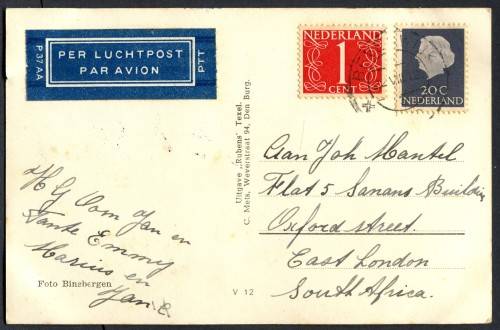 P 37 AA
PER LUCHTPOST
PAR AVION
PTT
NEDERLAND
1
CENT
20 C
NEDERLAND
Uitgave „Rubens" Texel.
C. Mels, Weverstraat 94, Den Burg.
Aan Joh Mantel
Flat 5 Sanans Building
Oxford street.
East London
South Africa.
Oom Jan en
Tante Emmy
Marius en
Jan
Foto Binsbergen
V 12